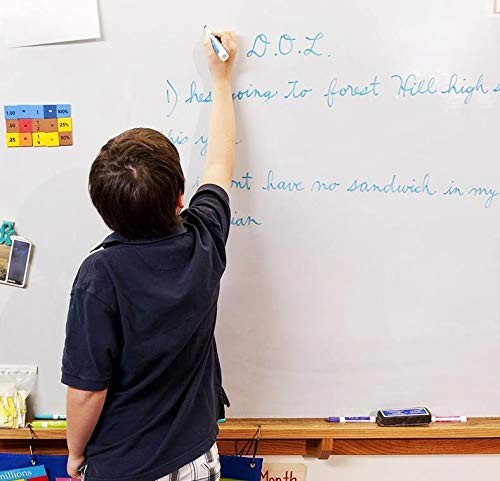 D.O.L.
1) hes going to forest Hill high
this
dont have no sandwich in my
1.00 = 100%
.50 = 1/2 = 25%
.25 = 1/4 = 50%
millions
Month